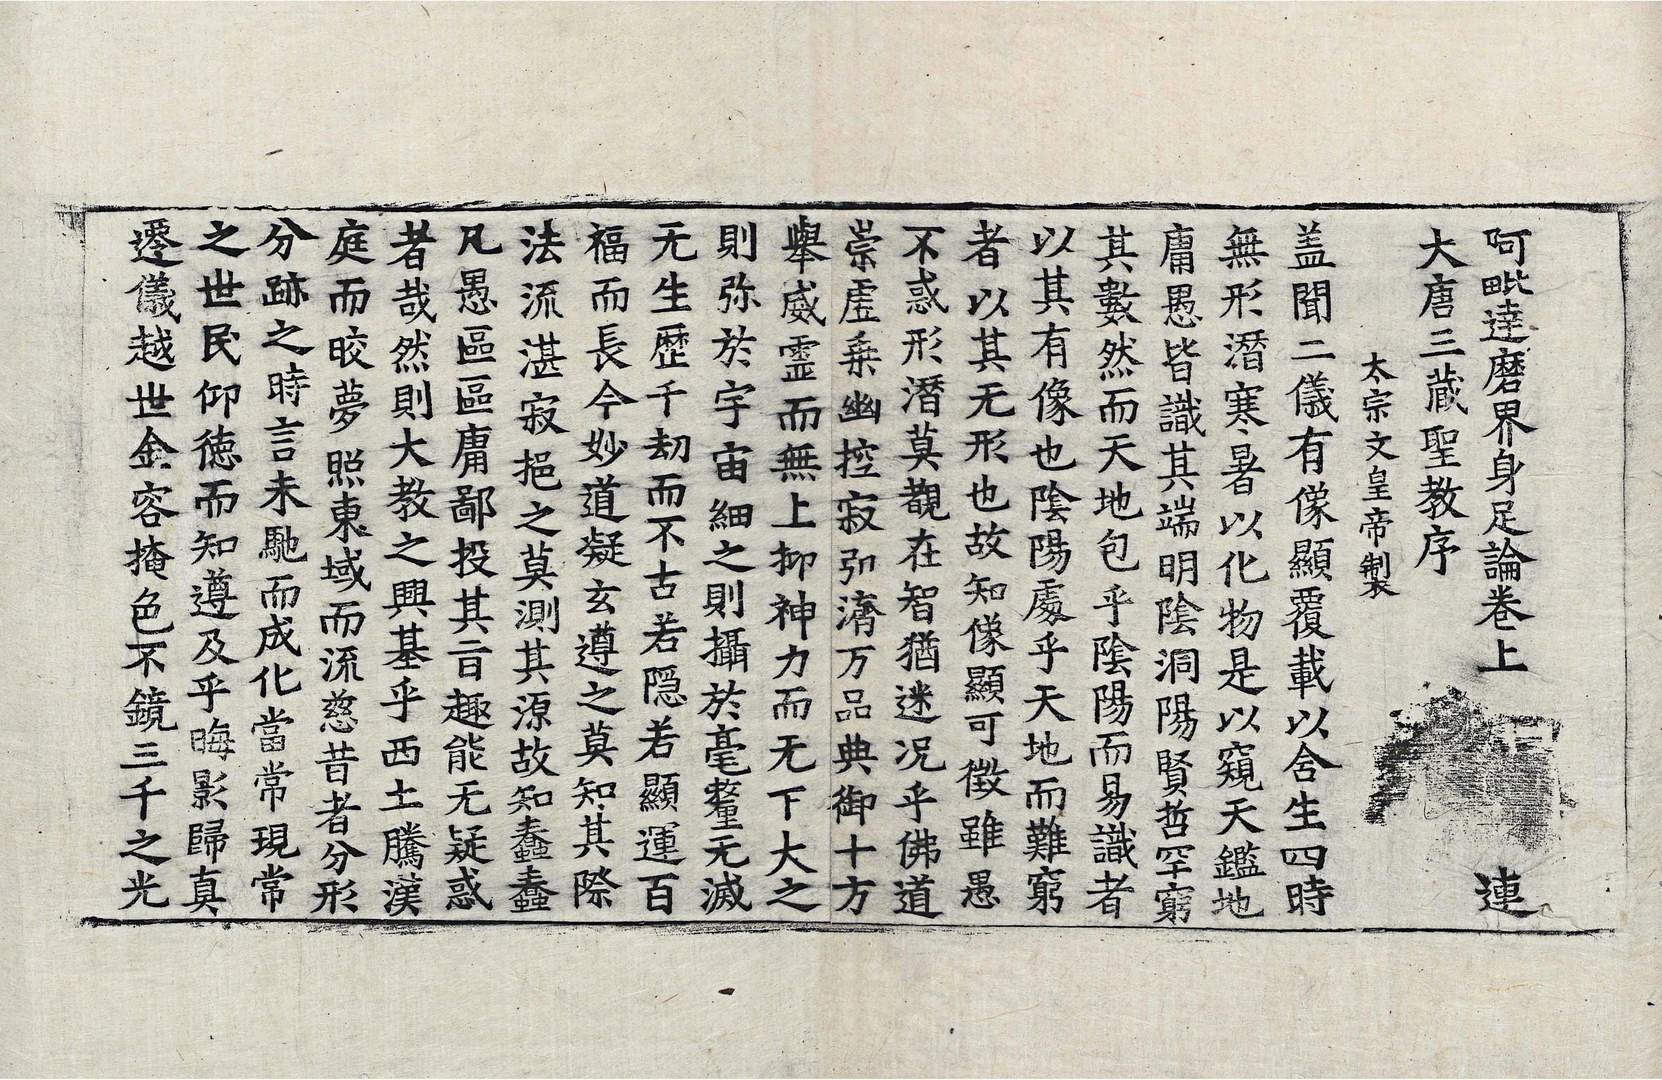 阿毗達磨界身足論卷上 連
大唐三藏聖教序
太宗文皇帝製
盖聞二儀有像顯覆載以含生四時
無形潛寒暑以化物是以窺天鑑地
庸愚皆識其端明陰洞陽賢哲罕窮
其數然而天地包乎陰陽而易識者
以其有像也陰陽處乎天地而難窮
者以其无形也故知像顯可徵雖愚
不惑形潛莫覩在智猶迷况乎佛道
崇虛乘幽控寂弘濟万品典御十方
舉威靈而無上抑神力而无下大之
則弥於宇宙細之則攝於毫釐无滅
无生歷千劫而不古若隱若顯運百
福而長今妙道凝玄遵之莫知其際
法流湛寂挹之莫測其源故知蠢蠢
凡愚區區庸鄙投其旨趣能无疑惑
者哉然則大教之興基乎西土騰漢
庭而晈夢照東域而流慈昔者分形
分跡之時言未馳而成化當常現常
之世民仰德而知遵及乎晦影歸真
遷儀越世金容掩色不鏡三千之光